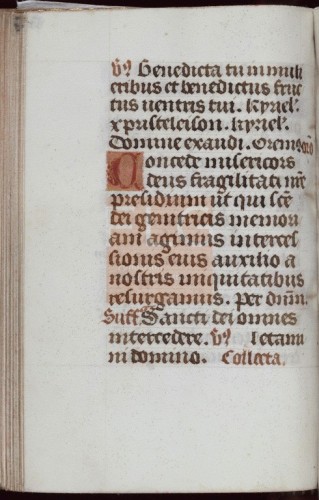 v̄ Benedicta tu in muli
eribus et benedictus fruc
tus uentris tui. kyriel'.
xpristeleison. kyriel'.
Domine exaudi. Oremus
Concede misericors
deus fragilitati nr̄e
presidium ut qui sc̄e
dei genitricis memori
am agimus interces
sionis eius auxilio a
nostris iniquitatibus
resurgamus. Per dn̄m.
Suff. Sancti dei omnes
intercedere. v̄ Letami
ni domino. Collecta.